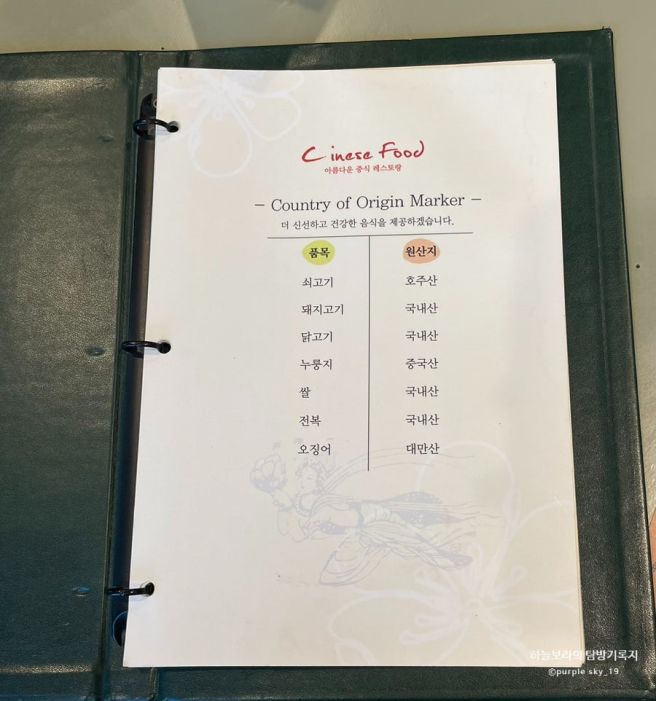 Cinese Food
아름다운 중식 레스토랑
– Country of Origin Marker –
더 신선하고 건강한 음식을 제공하겠습니다.
품목 원산지
쇠고기 호주산
돼지고기 국내산
닭고기 국내산
누룽지 중국산
쌀 국내산
전복 국내산
오징어 대만산
하늘보라의 탐방기록지
©purple sky_19